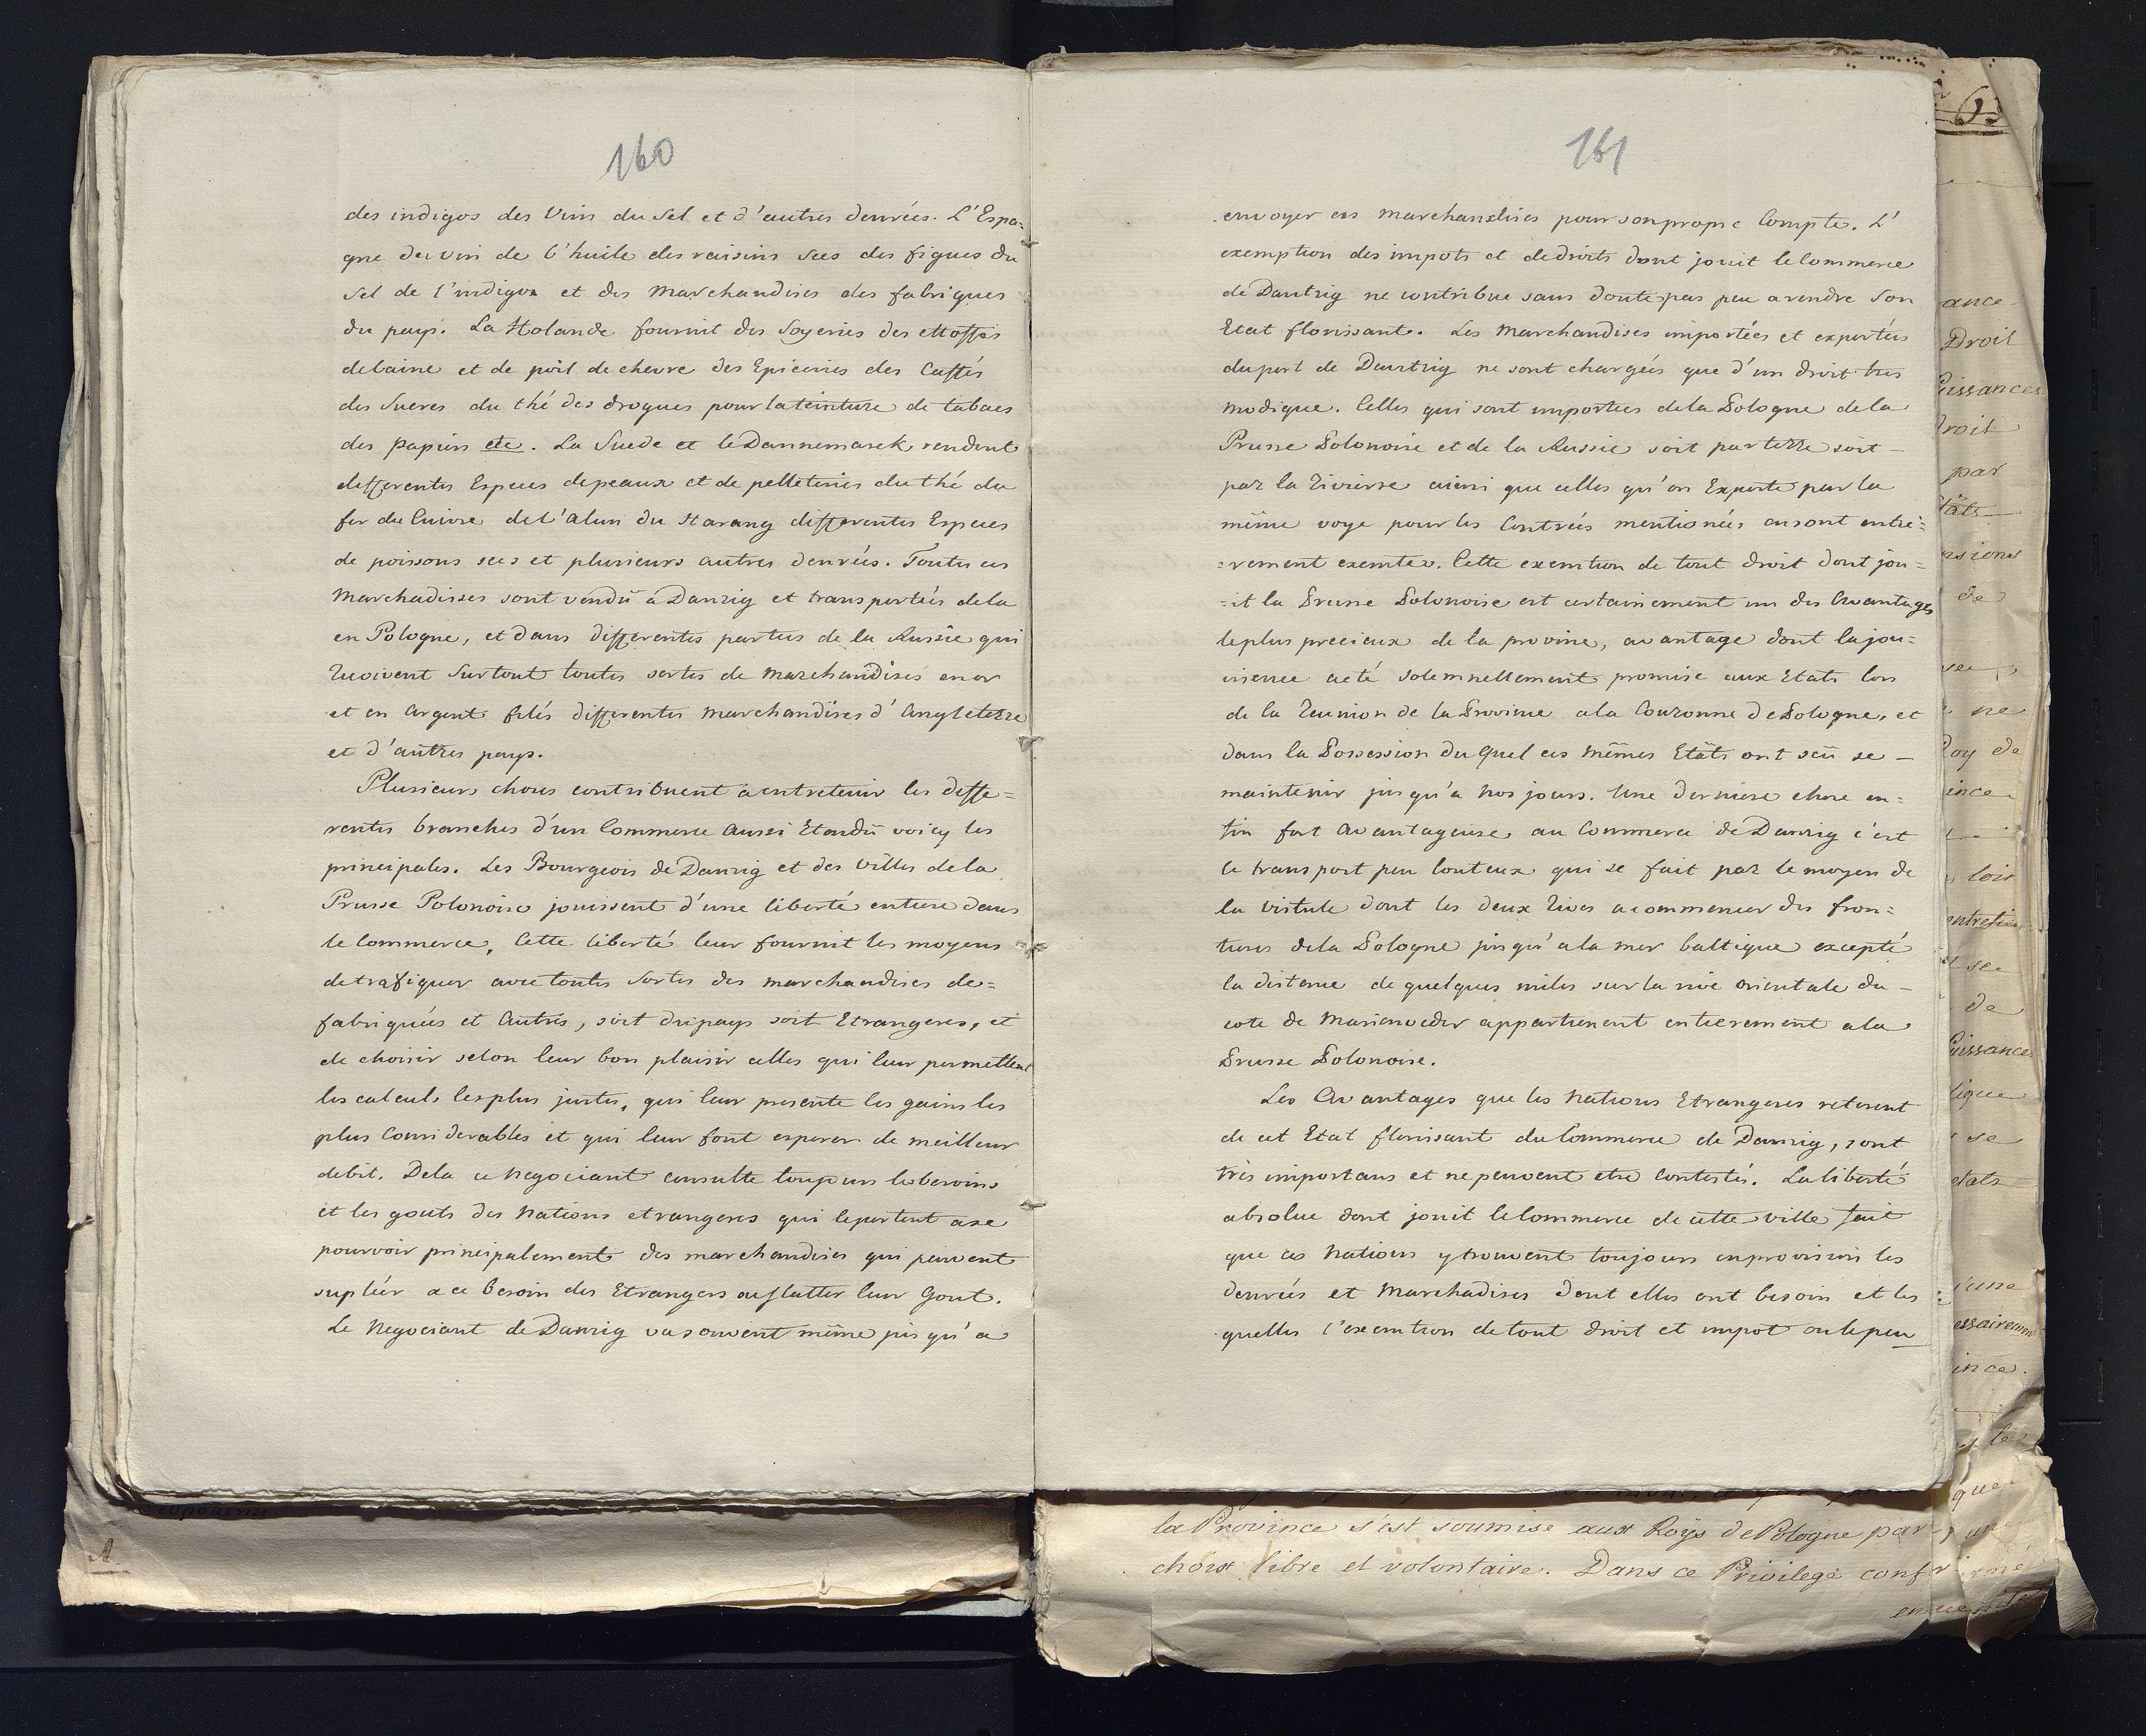 160
des indigos des Vins du Sel et d'autres denrées. L'Espa=
gne du vin de l'huile des raisins secs des figues du
sel de l'indigo et des Marchandises des fabriques
du pays. La Holande fournit des Soyeries des ettoffes
de laine et de poil de chevre des Epiceries des Caffés
des Sucres du thé des drogues pour la teinture de tabacs
des papiers etc. La Suede et le Dannemarck vendent
differentes Especes de peaux et de pelleteries du thé du
fer du Cuivre de l'alun du Harang differentes Especes
de poissons secs et plusieurs autres denrées. Toutes ces
Marchadises sont vendü a Danzig et transportées dela
en Pologne, et dans differentes parties de la Russie qui
recoivent Surtout toutes sortes de Marchandises en or
et en argent filés differentes Marchandises d'Angleterre
et d'autres pays.
Plusieurs choses contribuent a entretenir les diffe=
rentes branches d'un Commerce aussi Etendü voicy les
principales. Les Bourgeois de Danzig et des Villes de la
Prusse Polonoise jouissent d'une liberté entiere dans
le Commerce, Cette liberté leur fournit les moyens
de trafiquer avec toutes Sortes des marchandises de=
fabriqués et autres, soit du pays soit Etrangeres, et
de choisir selon leur bon plaisir celles qui leur permettent
les calculs les plus justes, qui leur presente les gains les
plus Considerables et qui leur font esperer de meilleur
debit. De la ce Negociant consulte toujours les besoins
et les gouts des Nations etrangeres qui le portent a se
pourvoir principalement des marchandises qui peuvent
supléér a ce besoin des Etrangers ou flatter leur Gout.
Le Negociant de Danzig va souvent même jusqu'a
161
envoyer ces marchandises pour son propre Compte. L'
exemption des impots et de droits dont jouit le Commerce
de Dantzig ne contribue sans doute pas peu a rendre Son
Etat florissant. Les Marchandises importées et exportées
du port de Dantzig ne sont chargées que d'un droit tres
modique. Celles qui sont importees de la Pologne de la
Prusse Polonoise et de la Russie soit par terre soit
par la Rivierre ainsi que celles qu'on Exporte par la
même voye pour les Contrées mentionées en sont entie=
=rement exemtes. Cette exemtion de tout droit dont jou=
=it la Prusse Polonoise est certainement un des Avantages
le plus precieux de la provine, avantage dont la jou=
issence a eté solemnellement promise aux Etats lors
de la Reunion de la Province a la Couronne de Pologne, et
dans la Possession du quel ces mêmes Etäts ont sçü se
maintenir jusqu'a nos jours. Une derniere chose en=
fin fort avantageuse au Commerce de Danzig c'est
le transport peu Couteux qui se fait par le moyen de
la Vistule dont les deux Rives a commencer des fron=
tieres de la Pologne jusqu'a la mer baltique excepté
la distance de quelques miles sur la rive orientale du
coté de Marienveder appartienent entierement a la
Prusse Polonoise.
Les Avantages que les Nations Etrangeres retirent
de cet Etat florissant du Commerce de Danzig, sont
très importans et ne peuvent etre contestés. La liberté
absolue dont jouit le Commerce de cette ville fait
que ces Nations y trouvent toujours en provision les
denrées et Marchadises dont elles ont besoin et les
quelles l'exemtion de tout droit et impot ou le peu
la Province s'est soumise aux Roÿs de Pologne par
choix libre et volontaire. Dans ce Privilege confirmé
ance
Droit
uissances
droit
par
de
ne
Roy de
ince
loix
entretien
se
de
uissance
ligue
se
etats
d'une
essairement
ince.
que
A